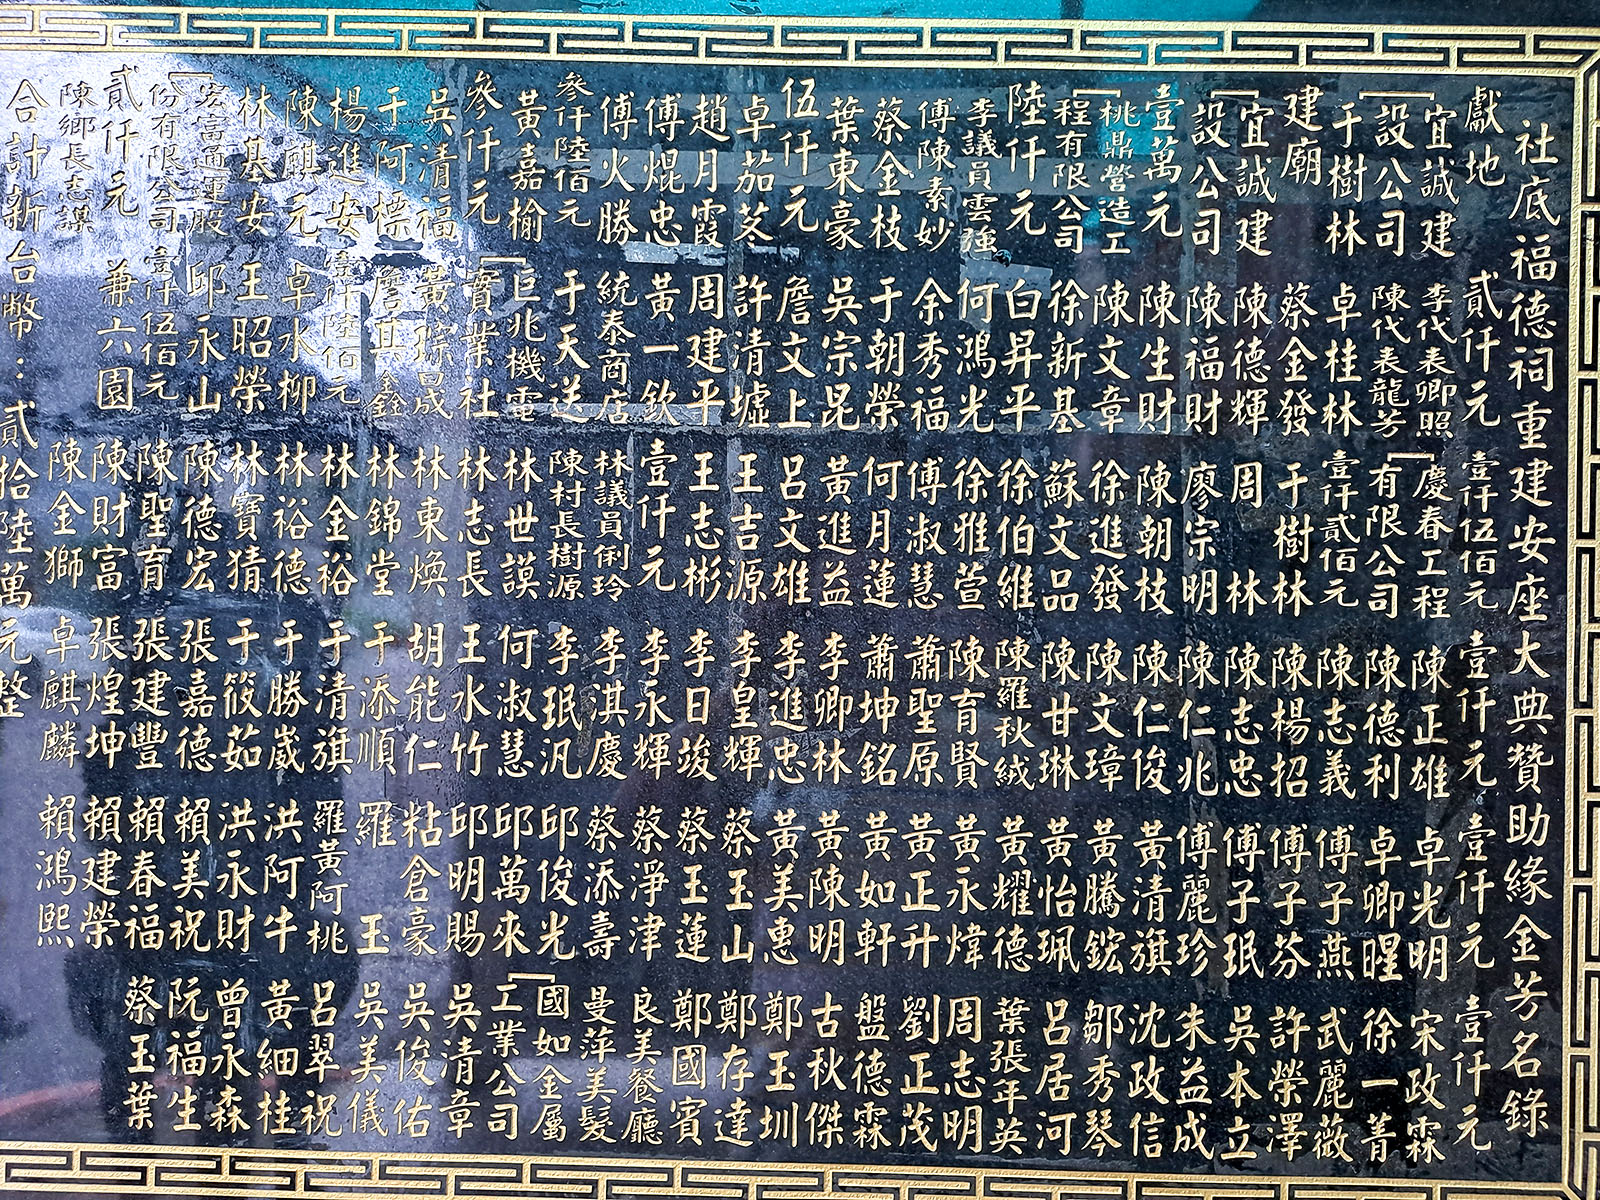 社底福德祠重建安座大典贊助緣金芳名錄
獻地
宜誠建
設公司
于樹林
建廟
宜誠建
設公司
壹萬元
桃鼎營造工
程有限公司
陸仟元
李議員雲強
傅陳素妙
蔡金枝
葉東豪
伍仟元
卓茄芠
趙月霞
傅焜忠
傅火勝
參仟陸佰元
黃嘉榆
參仟元
吳清福
于阿標
楊進安
陳麒元
林基安
宏富通運股
份有限公司
貳仟元
陳鄉長志謀
貳仟元
李代表卿照
陳代表龍芳
卓桂林
蔡金發
陳德輝
陳福財
陳生財
陳文章
徐新基
白昇平
何鴻光
余秀福
于朝榮
吳宗昆
詹文上
許清墟
周建平
黃一欽
統泰商店
于天送
巨兆機電
實業社
黃琮晟
詹其鑫
壹仟陸佰元
卓水柳
王昭榮
邱永山
壹仟伍佰元
兼六園
壹仟伍佰元
慶春工程
有限公司
壹仟貳佰元
于樹林
周林
廖宗明
陳朝枝
徐進發
蘇文品
徐伯維
徐雅萱
傅淑慧
何月蓮
黃進益
呂文雄
王吉源
王志彬
壹仟元
林議員俐玲
陳村長樹源
林世謨
林志長
林東煥
林錦堂
林金裕
林裕德
林寶猜
陳德宏
陳聖育
陳財富
陳金獅
壹仟元
陳正雄
陳德利
陳志義
陳楊招
陳志忠
陳仁兆
陳仁俊
陳文璋
陳甘琳
陳羅秋絨
陳育賢
蕭聖原
蕭坤銘
李卿林
李進忠
李皇輝
李日竣
李永輝
李淇慶
李珉汎
何淑慧
王水竹
胡能仁
于添順
于清旗
于勝崴
于筱茹
張嘉德
張建豐
張煌坤
卓麒麟
壹仟元
卓光明
卓卿暒
傅子燕
傅子芬
傅子珉
傅麗珍
黃清旗
黃騰鋐
黃怡珮
黃耀德
黃永煒
黃正升
黃如軒
黃陳明
黃美惠
蔡玉山
蔡玉蓮
蔡淨津
蔡添壽
邱俊光
邱萬來
邱明賜
粘倉豪
羅玉
羅黃阿桃
洪阿牛
洪永財
賴美祝
賴春福
賴建榮
賴鴻熙
壹仟元
宋政霖
徐一菁
武麗薇
許榮澤
吳本立
朱益成
沈政信
鄒秀琴
呂居河
葉張年英
周志明
劉正茂
盤德霖
古秋傑
鄭玉圳
鄭存達
鄭國賓
良美餐廳
曼萍美髮
國如金屬
工業公司
吳清章
吳俊佑
吳美儀
呂翠祝
黃細桂
曾永森
阮福生
蔡玉葉
合計新台幣：貳拾陸萬元整